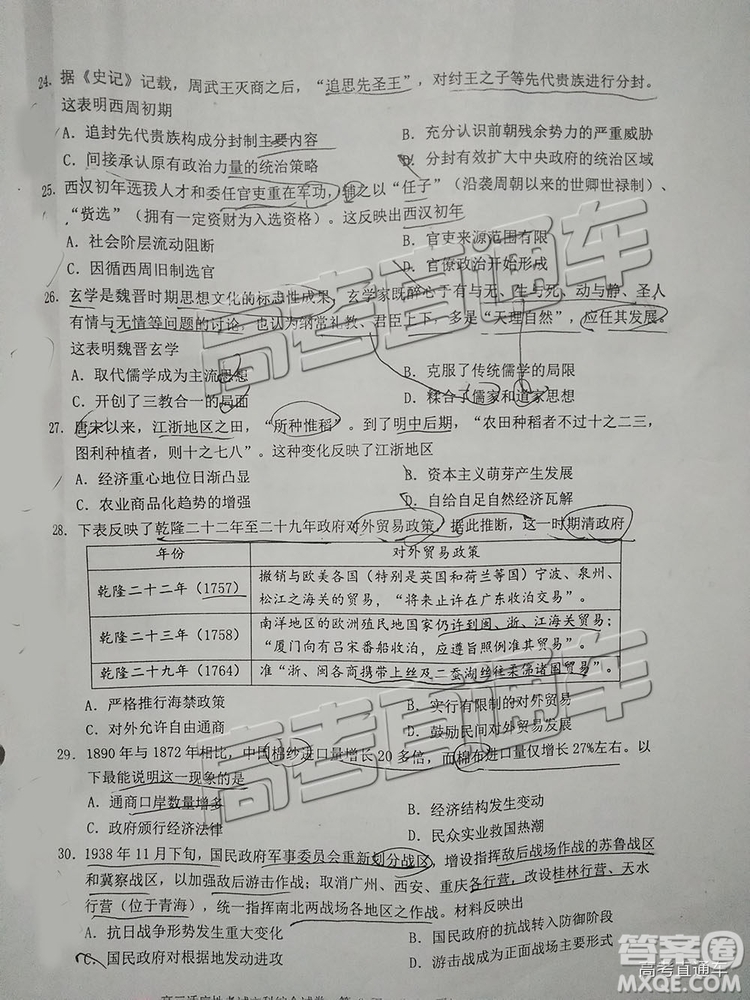 24. 据《史记》记载，周武王灭商之后，“追思先圣王”，对纣王之子等先代贵族进行分封。
这表明西周初期
A. 追封先代贵族构成分封制主要内容 B. 充分认识前朝残余势力的严重威胁
C. 间接承认原有政治力量的统治策略 D. 分封有效扩大中央政府的统治区域
25. 西汉初年选拔人才和委任官吏重在军功，辅之以“任子”（沿袭周朝以来的世卿世禄制）、
“赀选”（拥有一定资财为入选资格）。这反映出西汉初年
A. 社会阶层流动阻断 B. 官吏来源范围有限
C. 因循西周旧制选官 D. 官僚政治开始形成
26. 玄学是魏晋时期思想文化的标志性成果，玄学家既醉心于有与无、生与死、动与静、圣人
有情与无情等问题的讨论，也认为纲常礼教、君臣上下，多是“天理自然”，应任其发展。
这表明魏晋玄学
A. 取代儒学成为主流思想 B. 克服了传统儒学的局限
C. 开创了三教合一的局面 D. 糅合了儒家和道家思想
27. 唐宋以来，江浙地区之田，“所种惟稻”。到了明中后期，“农田种稻者不过十之二三，
图利种植者，则十之七八”。这种变化反映了江浙地区
A. 经济重心地位日渐凸显 B. 资本主义萌芽产生发展
C. 农业商品化趋势的增强 D. 自给自足自然经济瓦解
28. 下表反映了乾隆二十二年至二十九年政府对外贸易政策，据此推断，这一时期清政府
年份 对外贸易政策
乾隆二十二年（1757） 撤销与欧美各国（特别是英国和荷兰等国）宁波、泉州、
松江之海关的贸易，“将来止许在广东收泊交易”
乾隆二十三年（1758） 南洋地区的欧洲殖民地国家仍许到闽、浙、江海关贸易；
“厦门向有吕宋番船收泊，应遵旨照例准其贸易”
乾隆二十九年（1764） 准“浙、闽各商携带上丝及二蚕湖丝往柔佛诸国贸易”
A. 严格推行海禁政策 B. 实行有限制的对外贸易
C. 对外允许自由通商 D. 鼓励民间对外贸易发展
29. 1890 年与 1872 年相比，中国棉纱进口量增长 20 多倍，而棉布进口量仅增长 27%左右。以
下最能说明这一现象的是
A. 通商口岸数量增多 B. 经济结构发生变动
C. 政府颁行经济法律 D. 民众实业救国热潮
30. 1938 年 11 月下旬，国民政府军事委员会重新划分战区，增设指挥敌后战场作战的苏鲁战区
和冀察战区，以加强敌后游击作战；取消广州、西安、重庆各行营，改设桂林行营、天水
行营（位于青海），统一指挥南北两战场各地区之作战。材料反映出
A. 抗日战争形势发生重大变化 B. 国民政府的抗战转入防御阶段
C. 国民政府对根据地发动进攻 D. 敌后游击战成为正面战场主要形式
高考直通车
高考直通车
答案圈
高考直通车